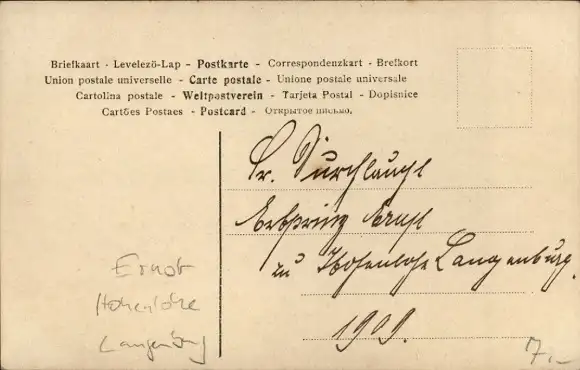 Briefkaart - Levelezö-Lap - Postkarte - Correspondenzkart - Brefkort
Union postale universelle - Carte postale - Unione postale universale
Cartolina postale - Weltpostverein - Tarjeta Postal - Dopisnice
Cartões Postaes - Postcard - Открытое письмо.
Sr. Durchlaucht
Erbprinz Ernst
zu Hohenlohe Langenburg.
1909.
Ernst
Hohenlohe
Langenburg
7.-